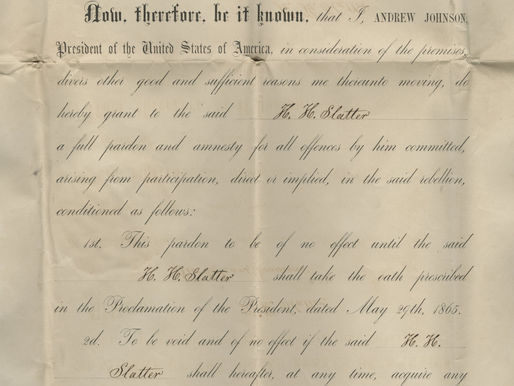 Now, therefore, be it known, that I, ANDREW JOHNSON,
President of the United States of America, in consideration of the premises,
divers other good and sufficient reasons me thereunto moving, do
hereby grant to the said H. H. Slatter
a full pardon and amnesty for all offences by him committed,
arising from participation, direct or implied, in the said rebellion,
conditioned as follows:
1st. This pardon to be of no effect until the said
H. H. Slatter shall take the oath prescribed
in the Proclamation of the President, dated May 29th, 1865.
2d. To be void and of no effect if the said H. H.
Slatter shall hereafter, at any time, acquire any